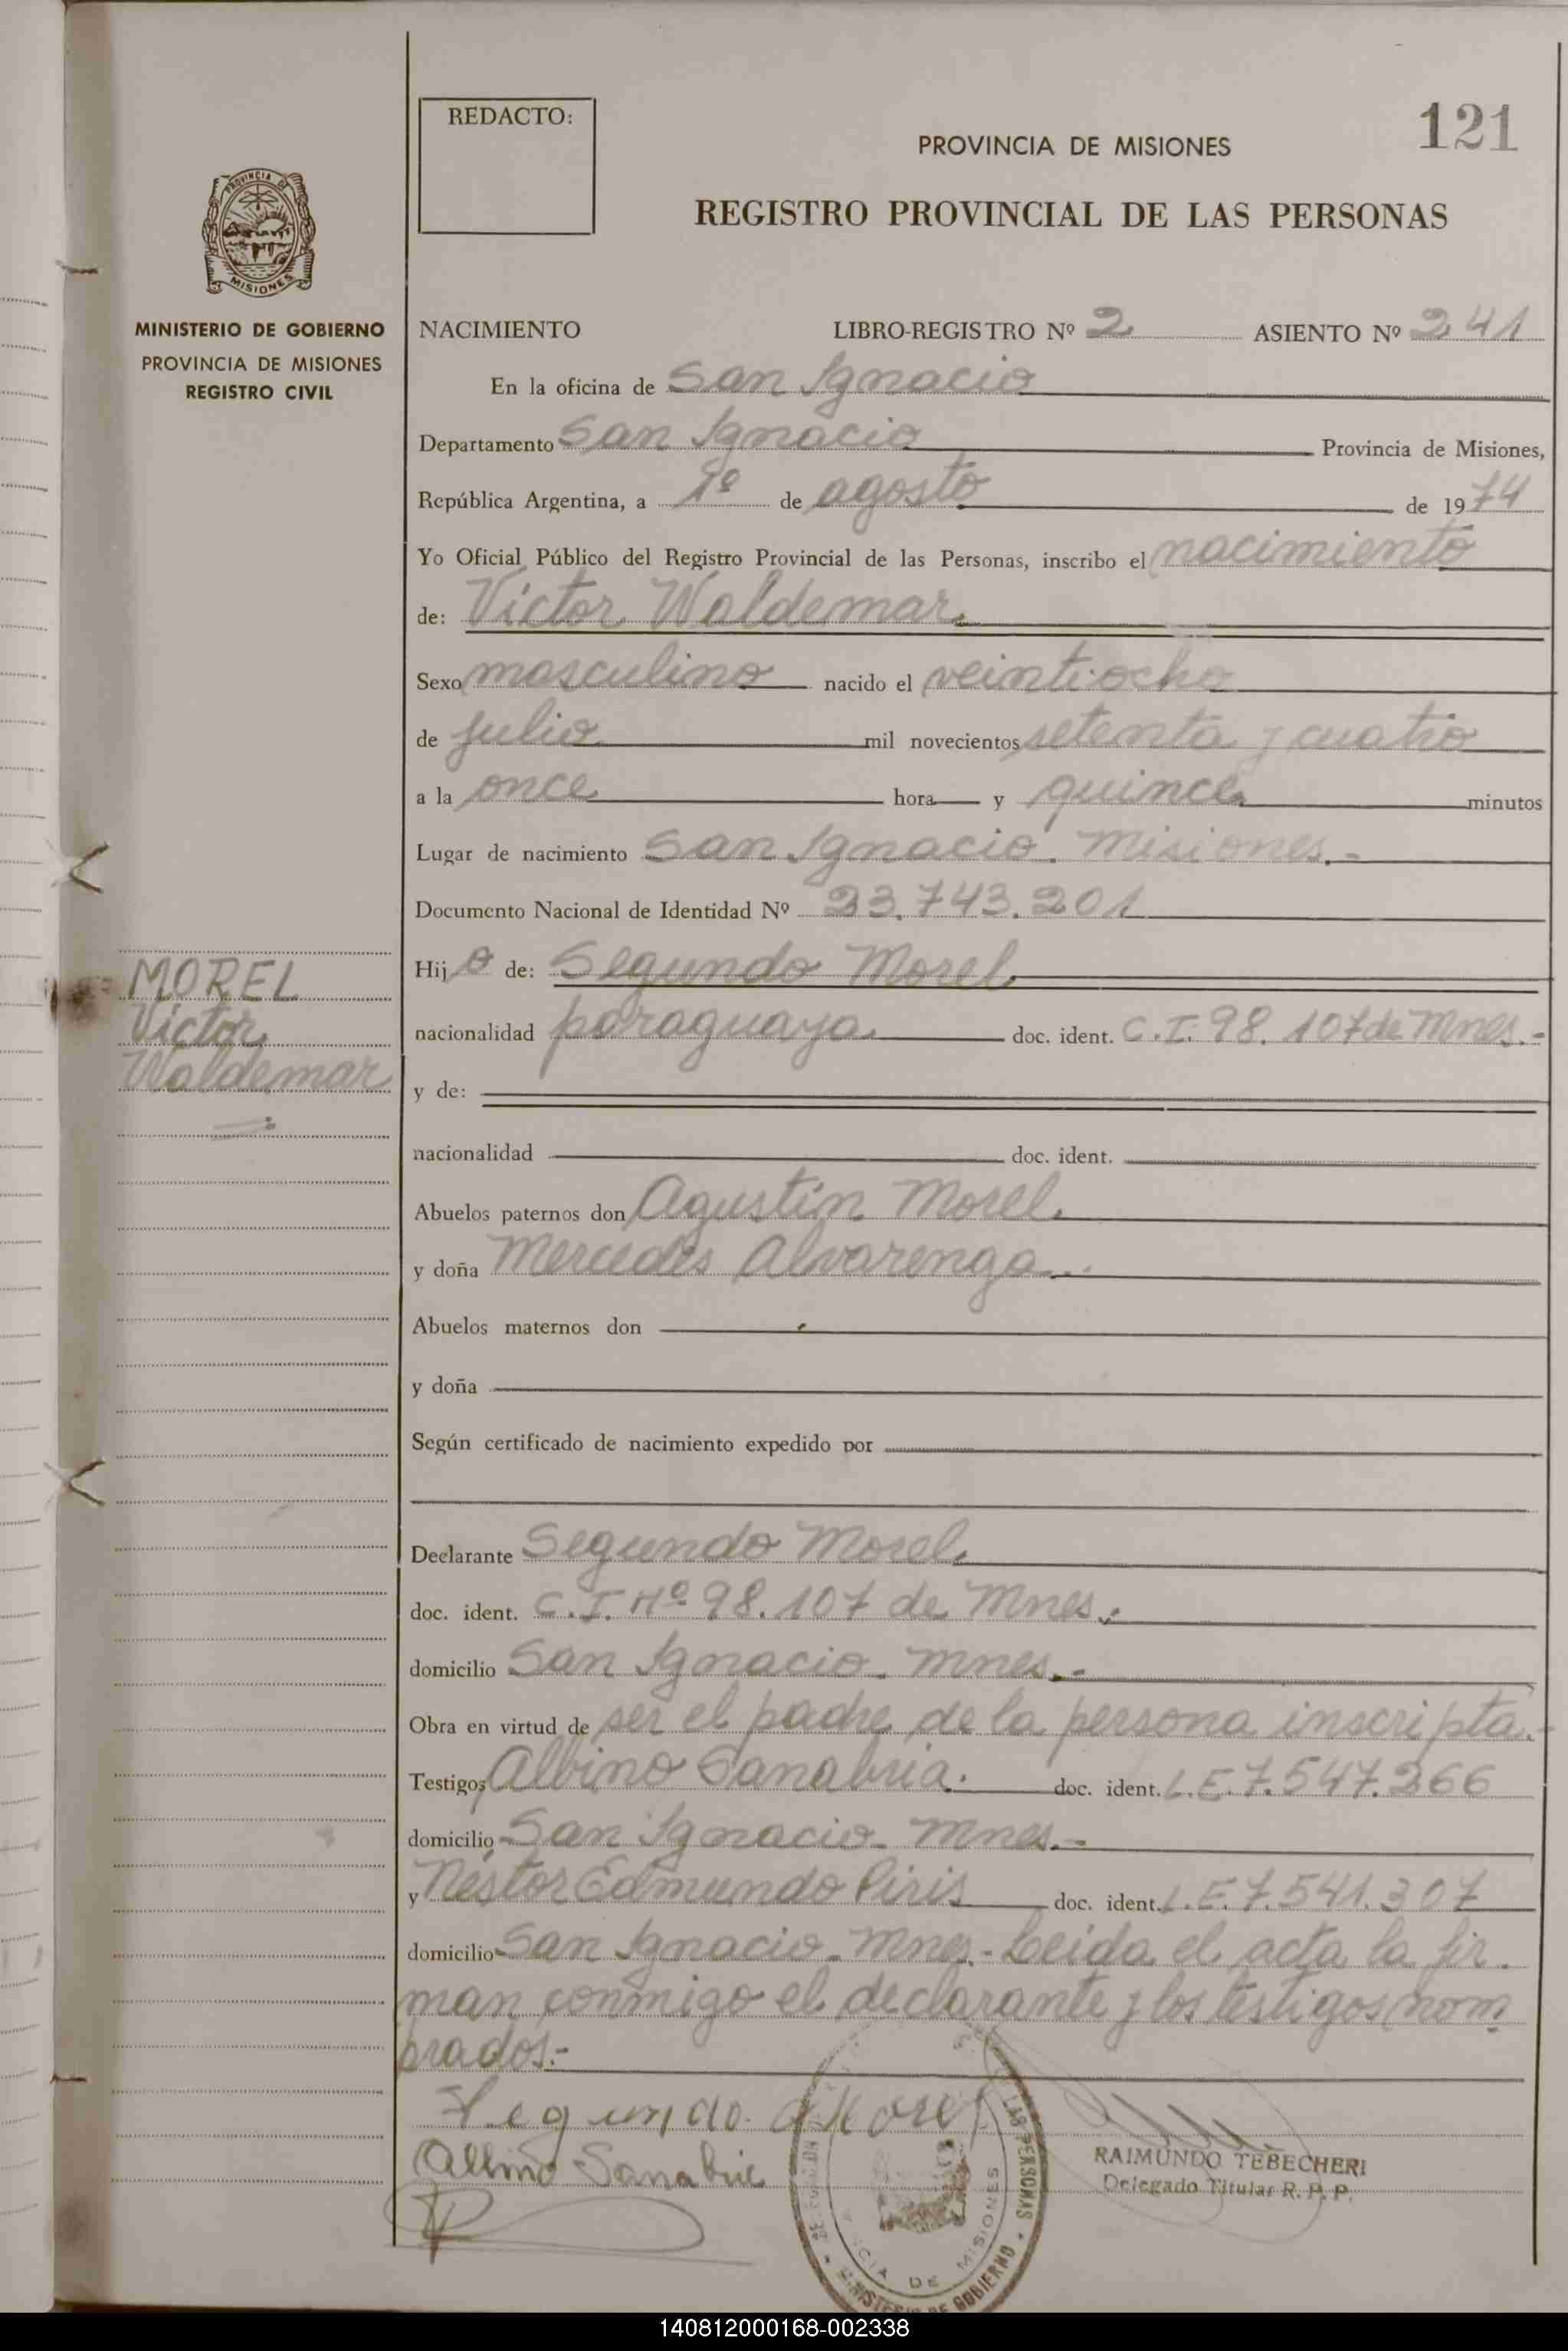 REDACTO:
121
PROVINCIA DE MISIONES
REGISTRO PROVINCIAL DE LAS PERSONAS
PROVINCIA DE
MISIONES
MINISTERIO DE GOBIERNO
PROVINCIA DE MISIONES
REGISTRO CIVIL
NACIMIENTO LIBRO-REGISTRO Nº 2 ASIENTO Nº 241
En la oficina de San Ignacio
Departamento San Ignacio Provincia de Misiones,
República Argentina, a 1º de agosto de 1974
Yo Oficial Público del Registro Provincial de las Personas, inscribo el nacimiento
de: Víctor Waldemar
Sexo masculino nacido el veintiocho
de julio mil novecientos setenta y cuatro
a la once hora y quince minutos
Lugar de nacimiento San Ignacio. Misiones.-
Documento Nacional de Identidad Nº 23.743.201
MOREL
Víctor
Waldemar
Hijo de: Segundo Morel
nacionalidad paraguaya doc. ident. C.I. 98.107 de Mnes.-
y de:
nacionalidad doc. ident.
Abuelos paternos don Agustín Morel.
y doña Mercedes Alvarenga.
Abuelos maternos don
y doña
Según certificado de nacimiento expedido por
Declarante Segundo Morel.
doc. ident. C.I. Nº 98.107 de Mnes.-
domicilio San Ignacio. Mnes.-
Obra en virtud de ser el padre de la persona inscripta.-
Testigos Albino Sanabria. doc. ident. L.E. 7.547.266
domicilio San Ignacio. Mnes.-
y Néstor Edmundo Piris doc. ident. L.E. 7.541.307
domicilio San Ignacio. Mnes.- Leida el acta la fir.
man conmigo el declarante y los testigos nom
brados.-
Segundo Morel
Albino Sanabria
RAIMUNDO TEBECHERI
Delegado Titular R. P. P.
LAS PERSONAS
MINISTERIO DE GOBIERNO
DE MISIONES
140812000168-002338